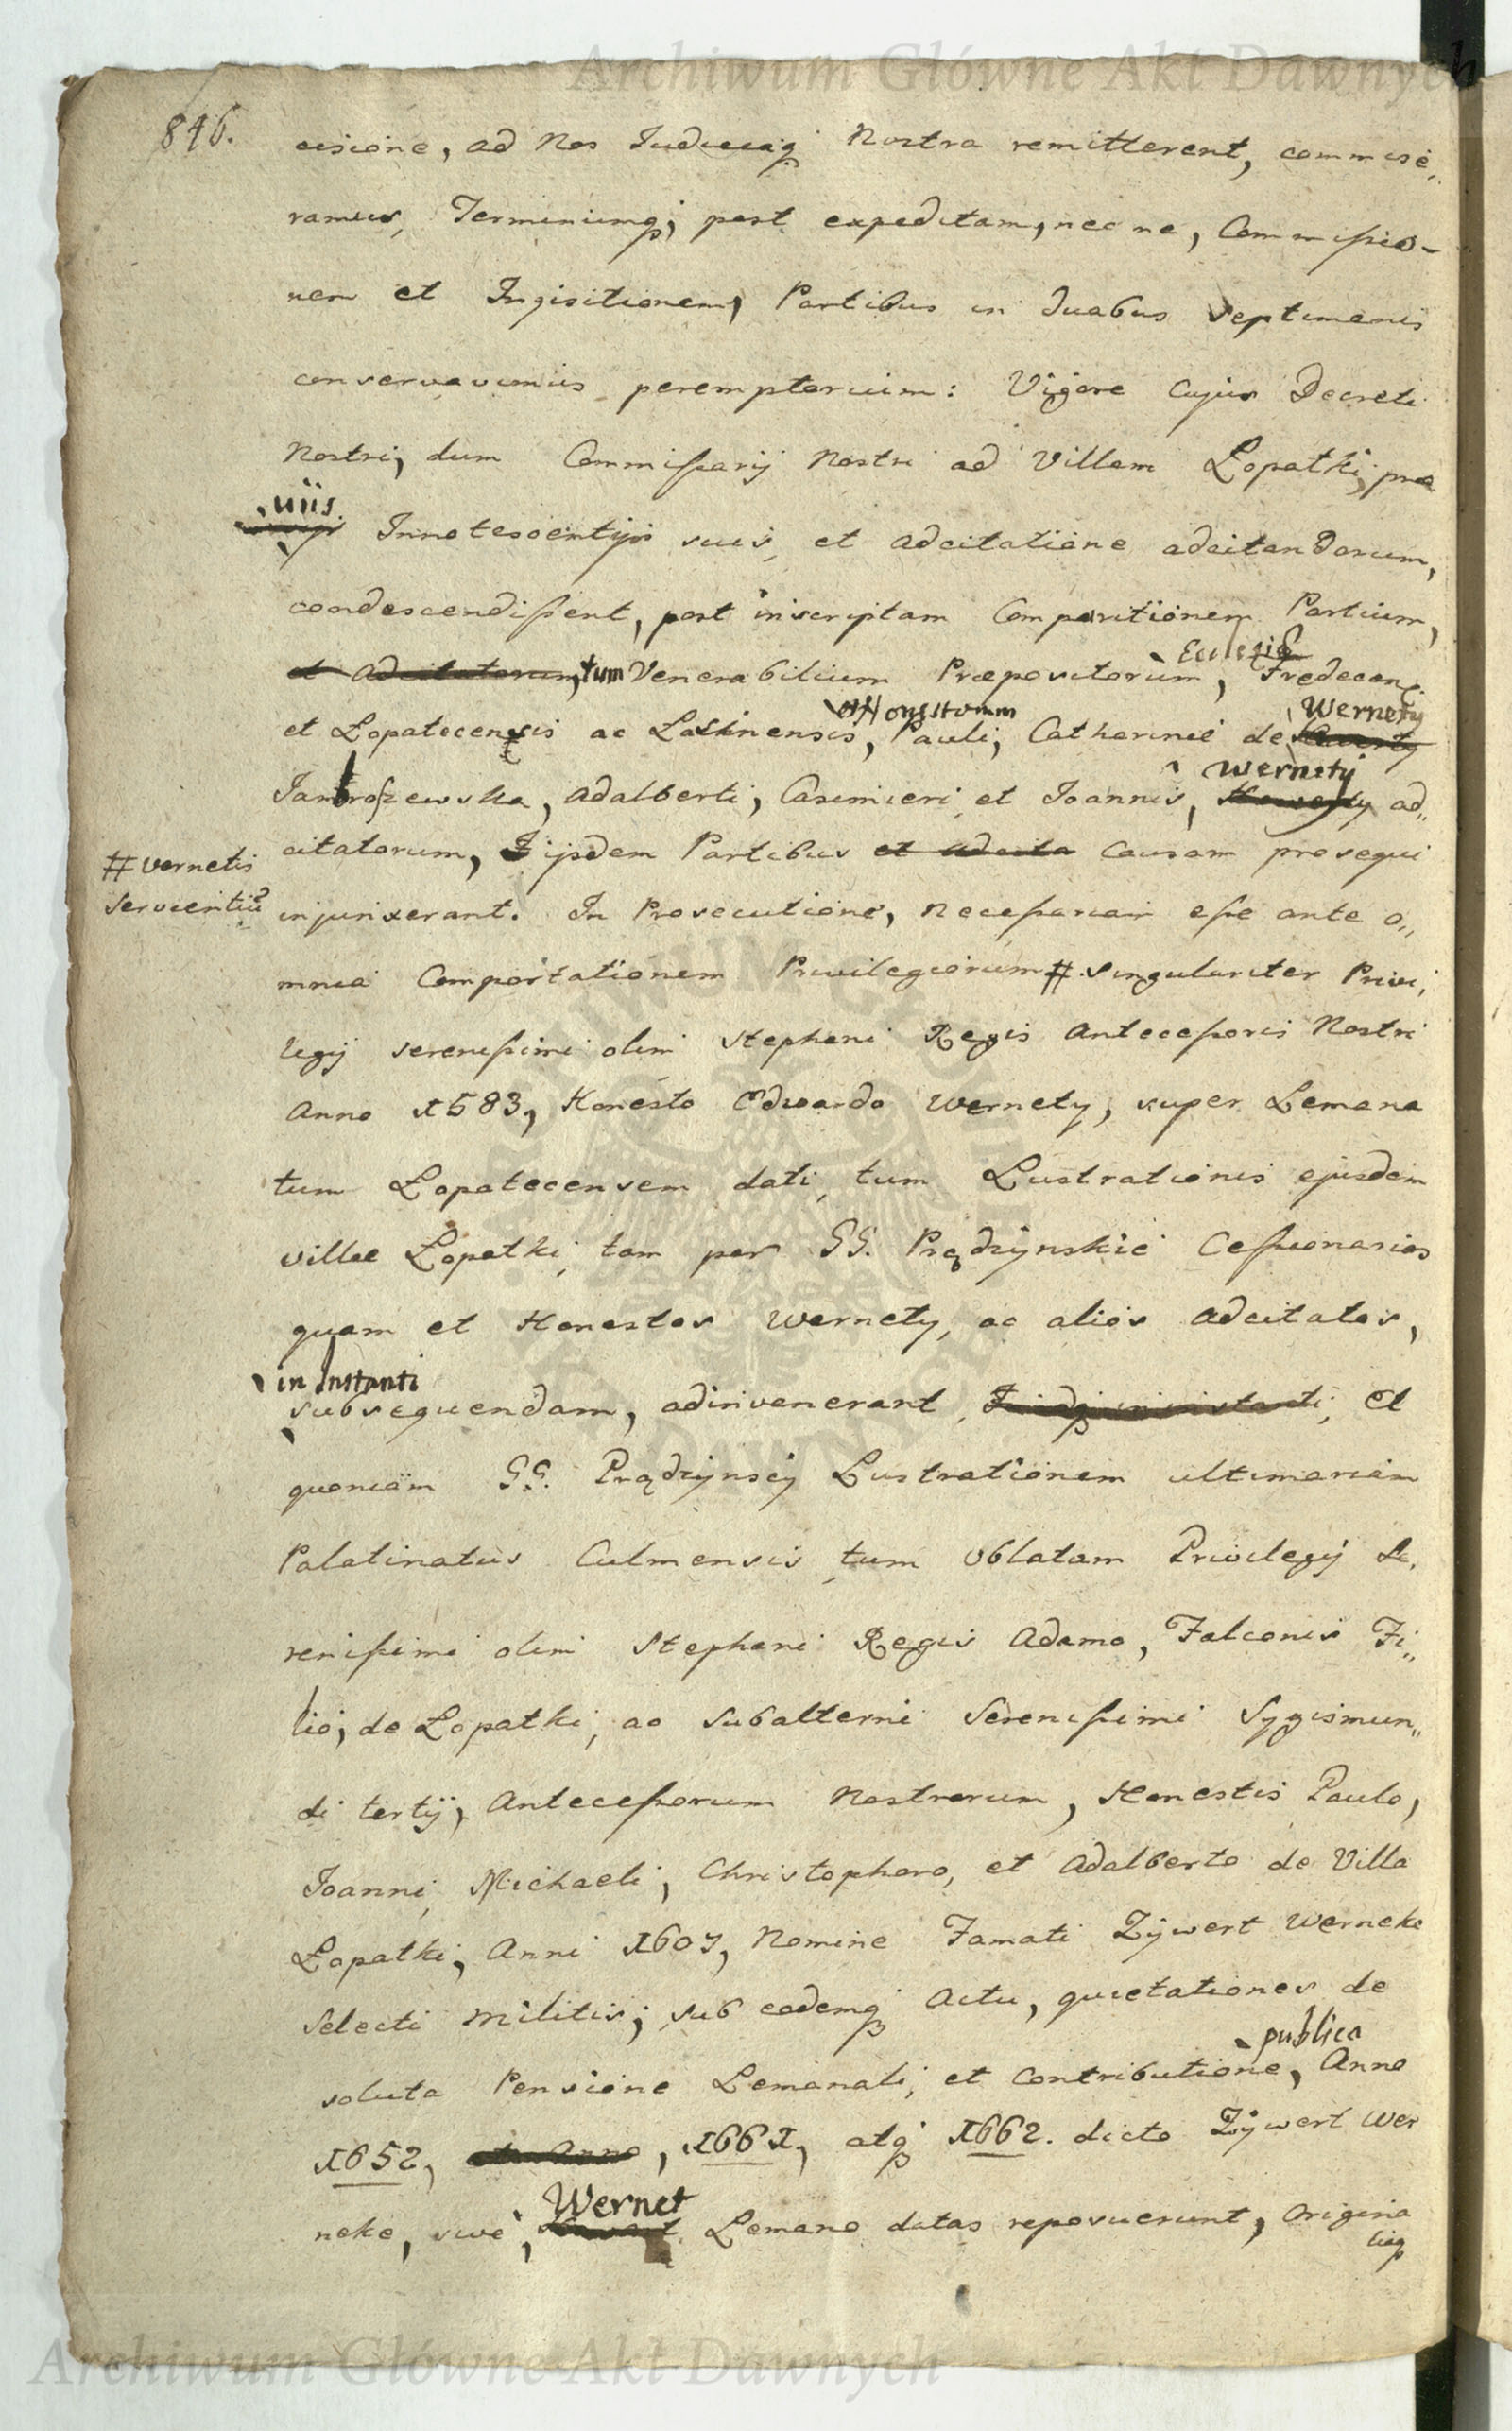 Archiwum Główne Akt Dawnych
846.
cisione, ad Nos Judiciaq; Nostra remitterent, commise,,
ramus, Terminumq; post expeditam, nec ne, Commissio-
nem et Inqisitionem, Partibus in duabus septimanis
conservavimus peremptorium: Vigore cujus Decreti
Nostri, dum Commissarij Nostri ad Villam Łopatki, præ
viis Innotescentijs suis, et adcitatione adcitandorum,
condescendissent, post inscriptam Comparitionem Partium,
et Adcitatorum, tum Venerabilium Præpositorum, Ecclesiæ Fredecen:
et Łopatecensis ac Lasinensis, et Honestorum Pauli, Catharinæ de Wernety
Jambroszewska, Adalberti, Casimieri et Joannis, Wernety ad,,
citatorum, ijsdem Partibus et adcita Causam prosequi
injunxerant. In Prosecutione, necessariam esse ante o,,
mnia Comportationem Privilegiorum # singulariter Privi,
# Vernetis
servientiũ
legij serenissimi olim Stephani Regis Antecessoris Nostri
Anno 1583, Honesto Edwardo Wernety, super Lemana
tum Łopatecensem dati, tum Lustrationis ejusdem
villæ Łopatki, tam per GG. Prądzynskie Cessionarios
quam et Honestos Wernety, ac alios adcitatos,
in Instanti
subsequendam, adinvenerant, et
quoniam GG. Prądzynscy Lustrationem ultimariam
Palatinatus Culmensis, tum Oblatam Privilegij Se,
renissimi olim Stephani Regis Adamo, Falconis Fi,,
lio, de Łopatki, ac subalterni Serenissimi Sygismun,,
di tertij, Antecessorum Nostrorum, Honestis Paulo,
Joanni, Michaeli, Christophoro, et Adalberto de Villa
Łopatki, Anni 1607, Nomine Famati Zywert Werneke
Selecti Militis; sub eodemq; Actu, quietationes de
soluta Pensione Lemanali, et Contributione, publica Anno
1652, et Anno, 1661, atq; 1662. dicto Zywert Wer
neke, sive, Wernet Lemano datas reposuerunt, Origina
liaq;
Archiwum Główne Akt Dawnych